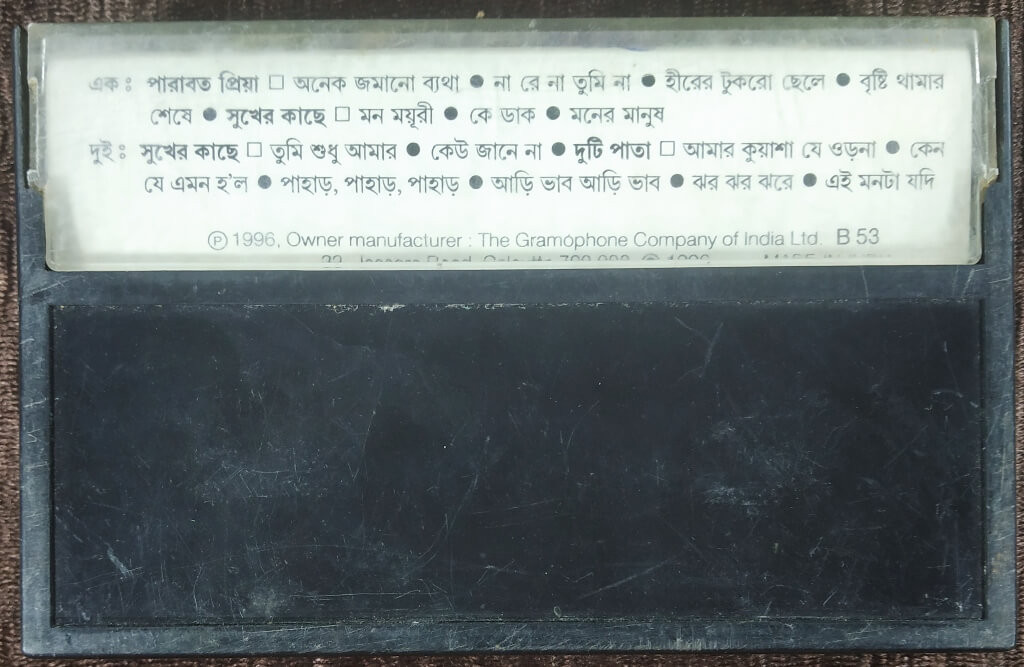 এক : পারাবত প্রিয়া □ অনেক জমানো ব্যথা ● না রে না তুমি না ● হীরের টুকরো ছেলে ● বৃষ্টি থামার
শেষে ● সুখের কাছে □ মন ময়ূরী ● কে ডাক ● মনের মানুষ
দুই : সুখের কাছে □ তুমি শুধু আমার ● কেউ জানে না ● দুটি পাতা □ আমার কুয়াশা যে ওড়না ● কেন
যে এমন হ'ল ● পাহাড়, পাহাড়, পাহাড় ● আড়ি ভাব আড়ি ভাব ● ঝর ঝর ঝরে ● এই মনটা যদি
Ⓟ 1996, Owner manufacturer : The Gramophone Company of India Ltd. B 53